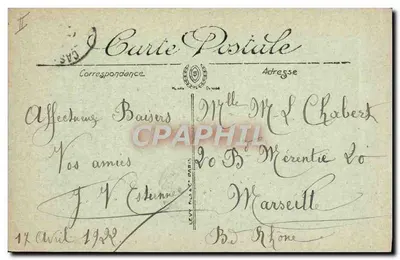 II
CAS
Carte Postale
Correspondance
Adresse
Affectueux Baisers
Vos amies
J V. Estienne
17 Avril 1922
Mlle M. L Chabert
20 Bd Mérentié 20
Marseille
Bd. Rhone
CPAPHIL